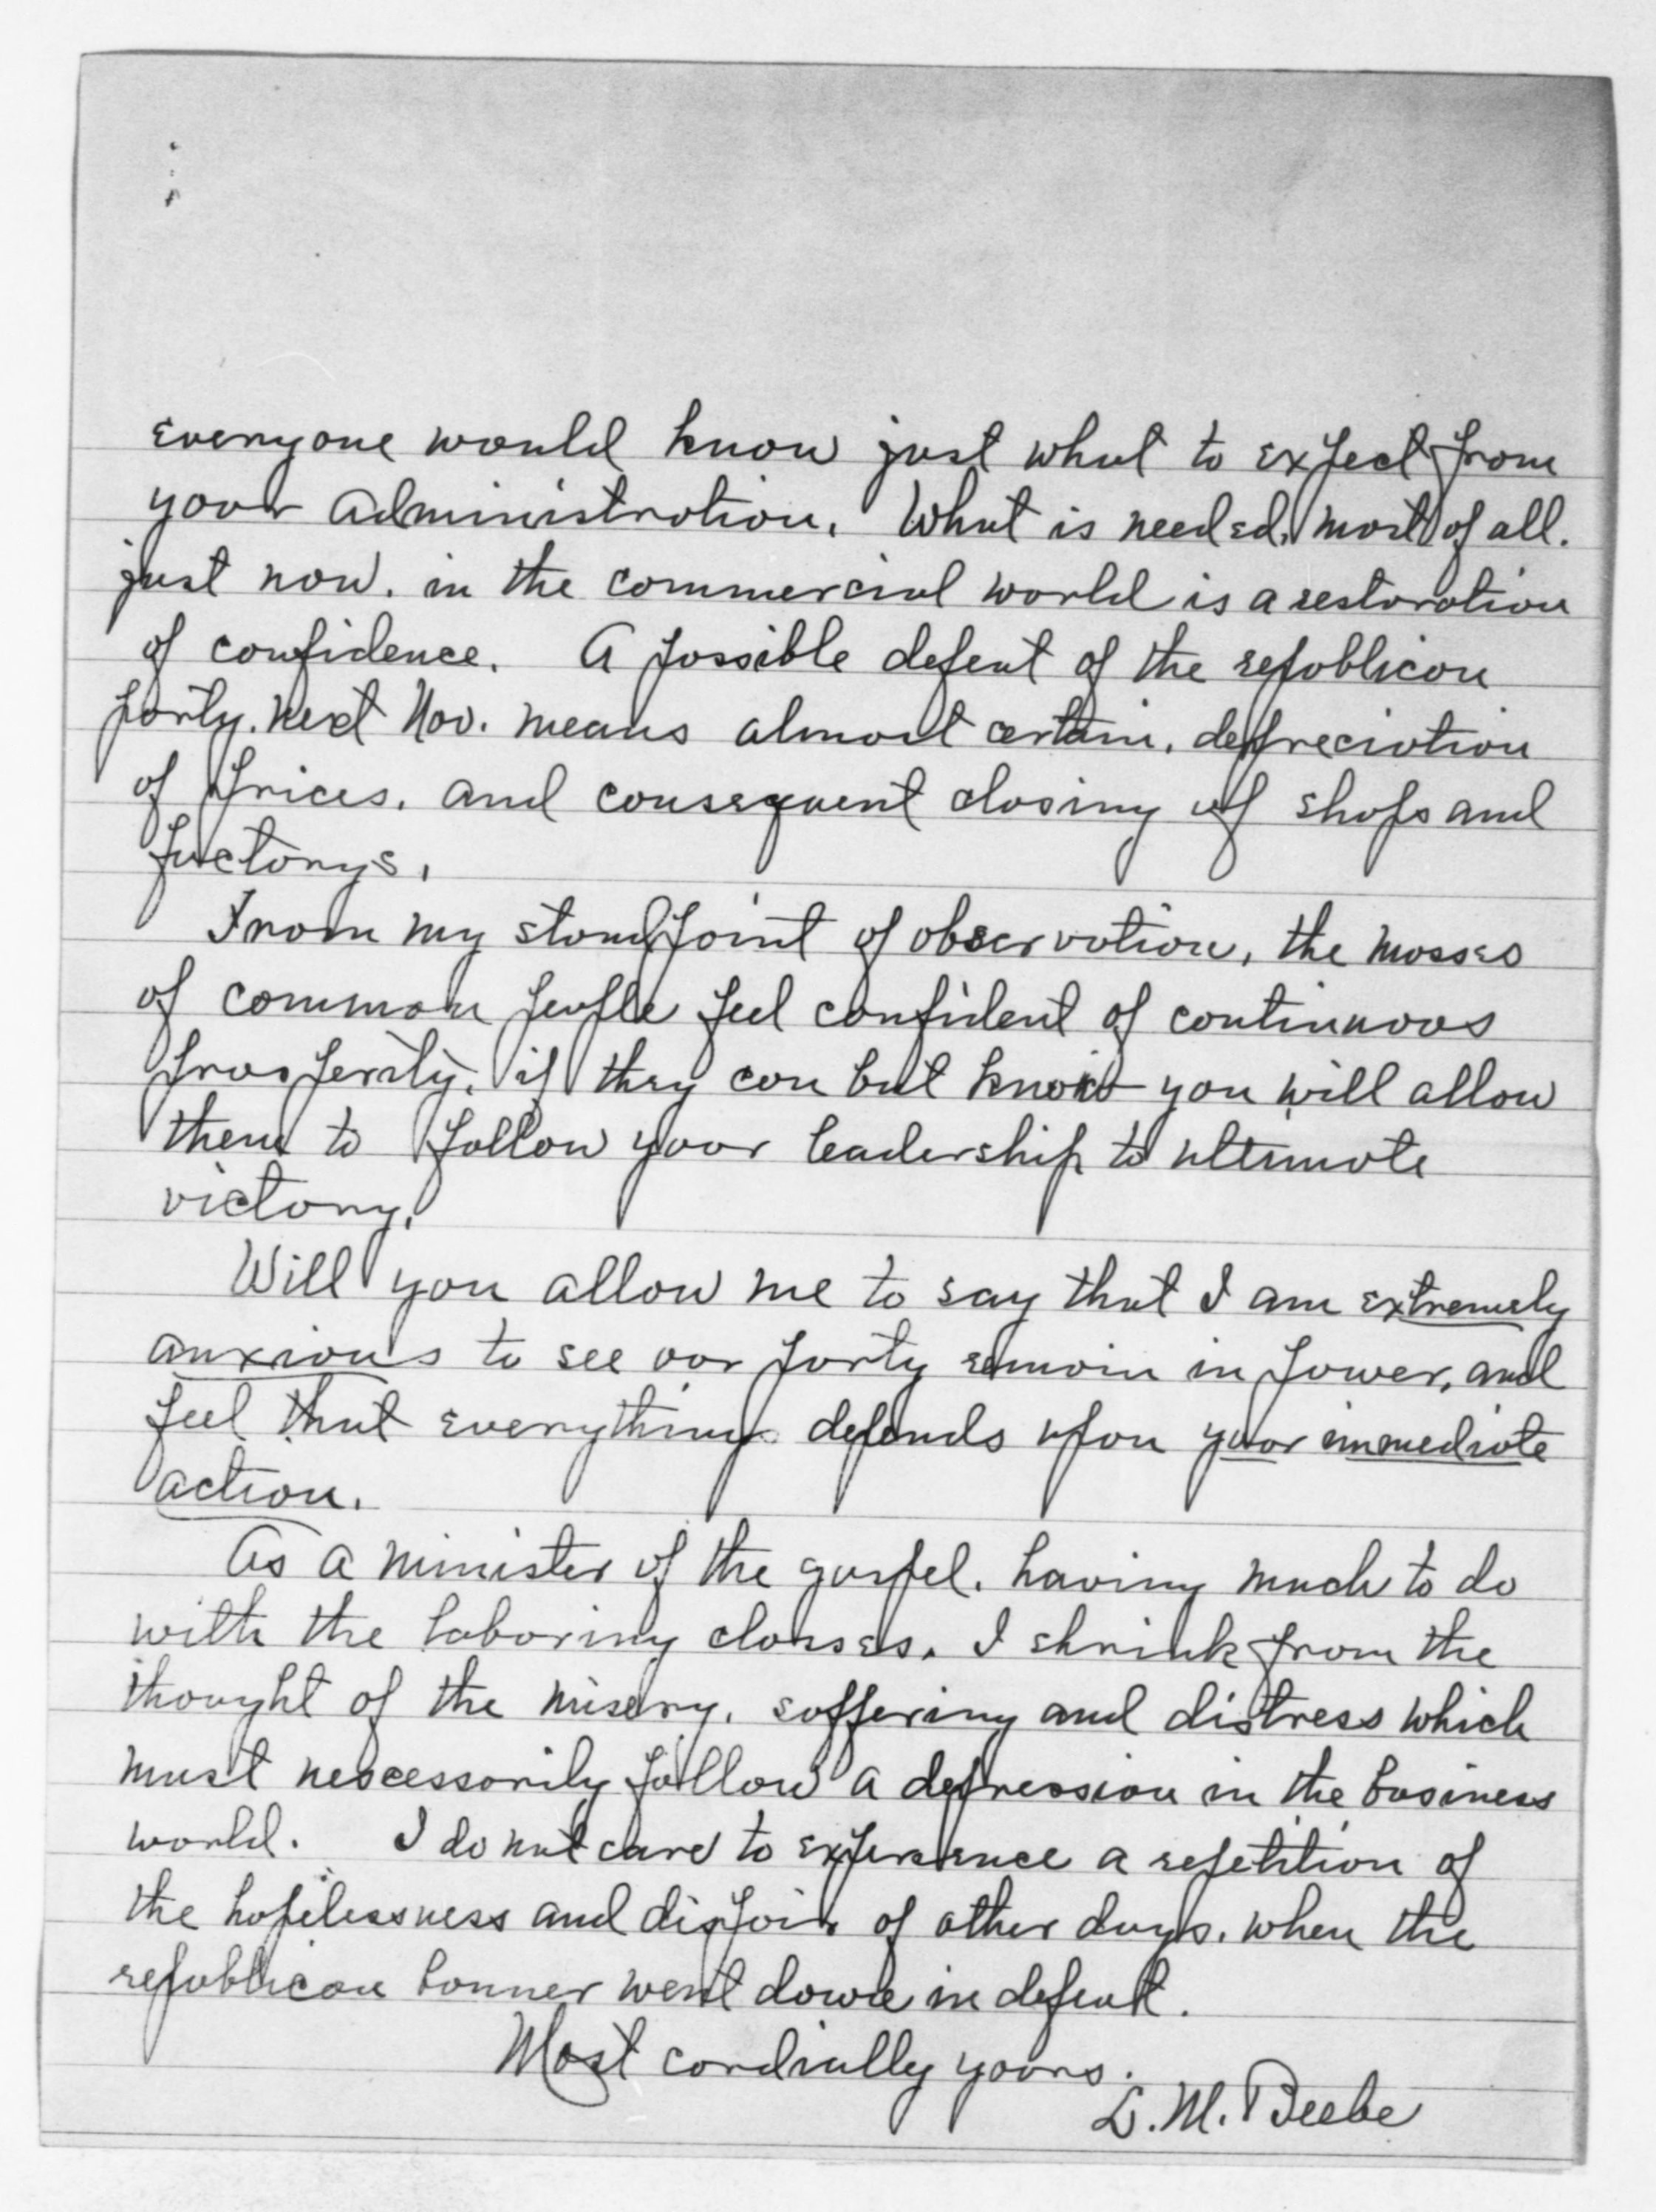 everyone would know just what to expect from
your administration. What is needed, most of all.
just now. in the commercial world is a restoration
of confidence. A possible defeat of the republican
party. next Nov. means almost certain. depreciation
of prices. and consequent closing of shops and
factorys.
From my standpoint of observation, the masses
of common people feel confident of continuous
prosperity. if they can but know you will allow
them to follow your leadership to ultimate
victory.
Will you allow me to say that I am extremely
anxious to see our party remain in power, and
feel that everything depends upon your immediate
action.
As a minister of the gospel. having much to do
with the laboring classes. I shrink from the
thought of the misery. suffering and distress which
must nescessarily follow a depression in the business
world. I do not care to experience a repetition of
the hopelessness and dispair of other days. when the
republican banner went down in defeat.
Most cordially yours.
L. M. Beebe